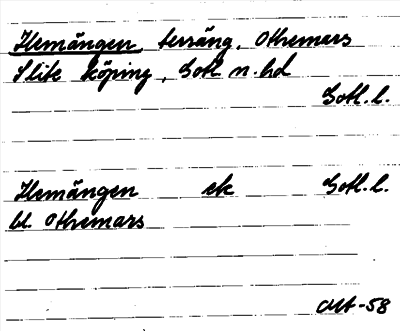 Ilemängen terräng, Othemars
Slite köping, Gotl. n. hd
Gotl. l.
Ilemängen ek Gotl. l.
bl. Othemars
-58